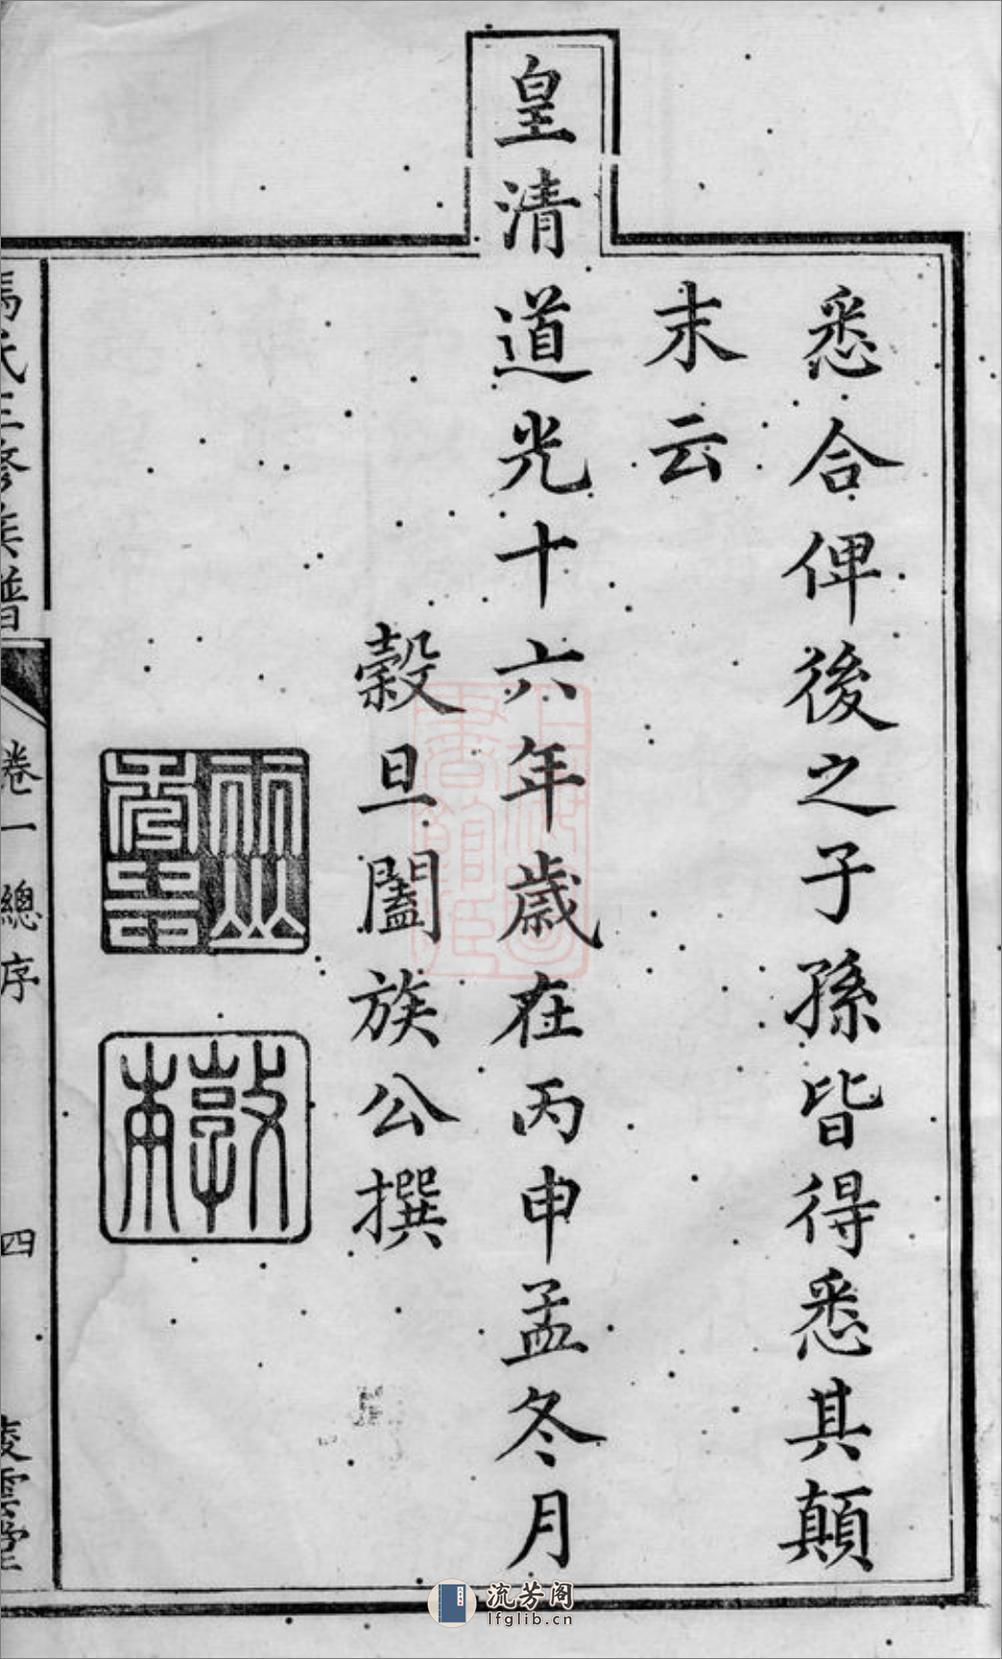 悉合俾後之子孫皆得悉其顛
末云
皇清道光十六年歲在丙申孟冬月
穀旦闔族公撰
敦甫
馮氏三修族譜
卷一總序
四
流芳阁
lfglib.cn